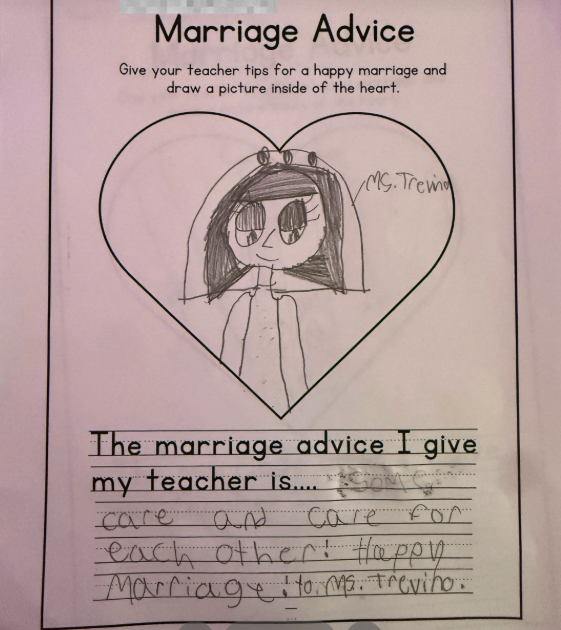 Marriage Advice
Give your teacher tips for a happy marriage and
draw a picture inside of the heart.
Ms. Trevino
The marriage advice I give
my teacher is....
care and care for
each other! Happy
Marriage! to Ms. Trevino.